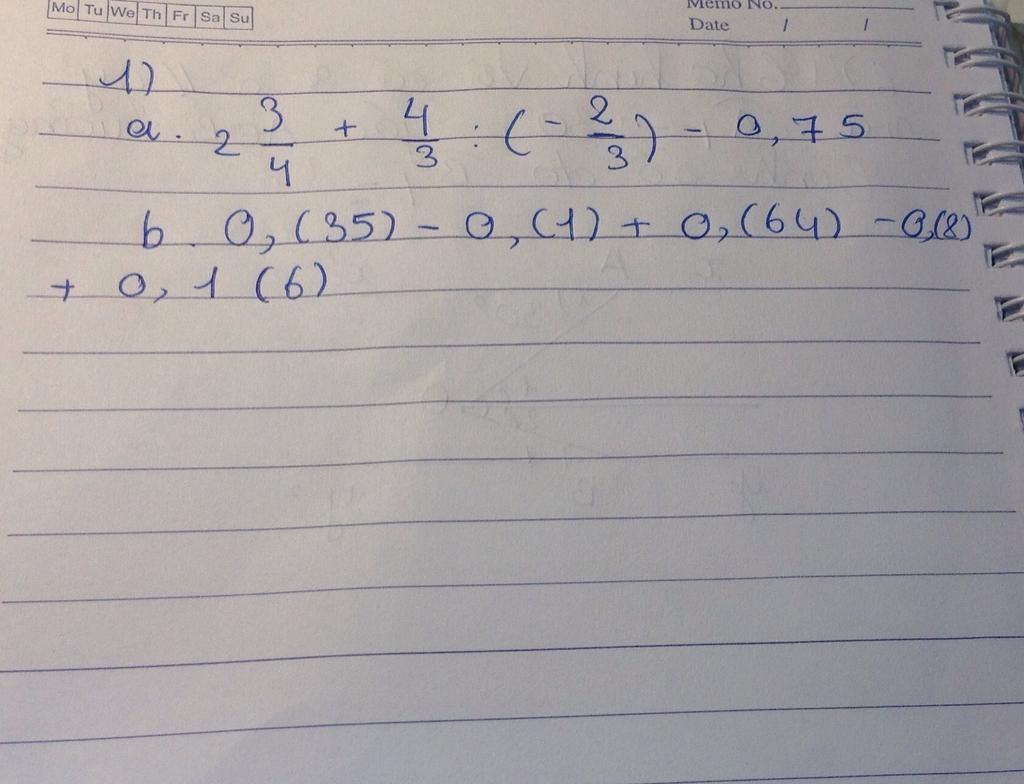 Mo Tu We Th Fr Sa Su
Memo No.
Date / /
1)
a. 2 3/4 + 4/3 : (- 2/3) - 0,75
b. 0,(35) - 0,(1) + 0,(64) - 0,(8)
+ 0,1(6)